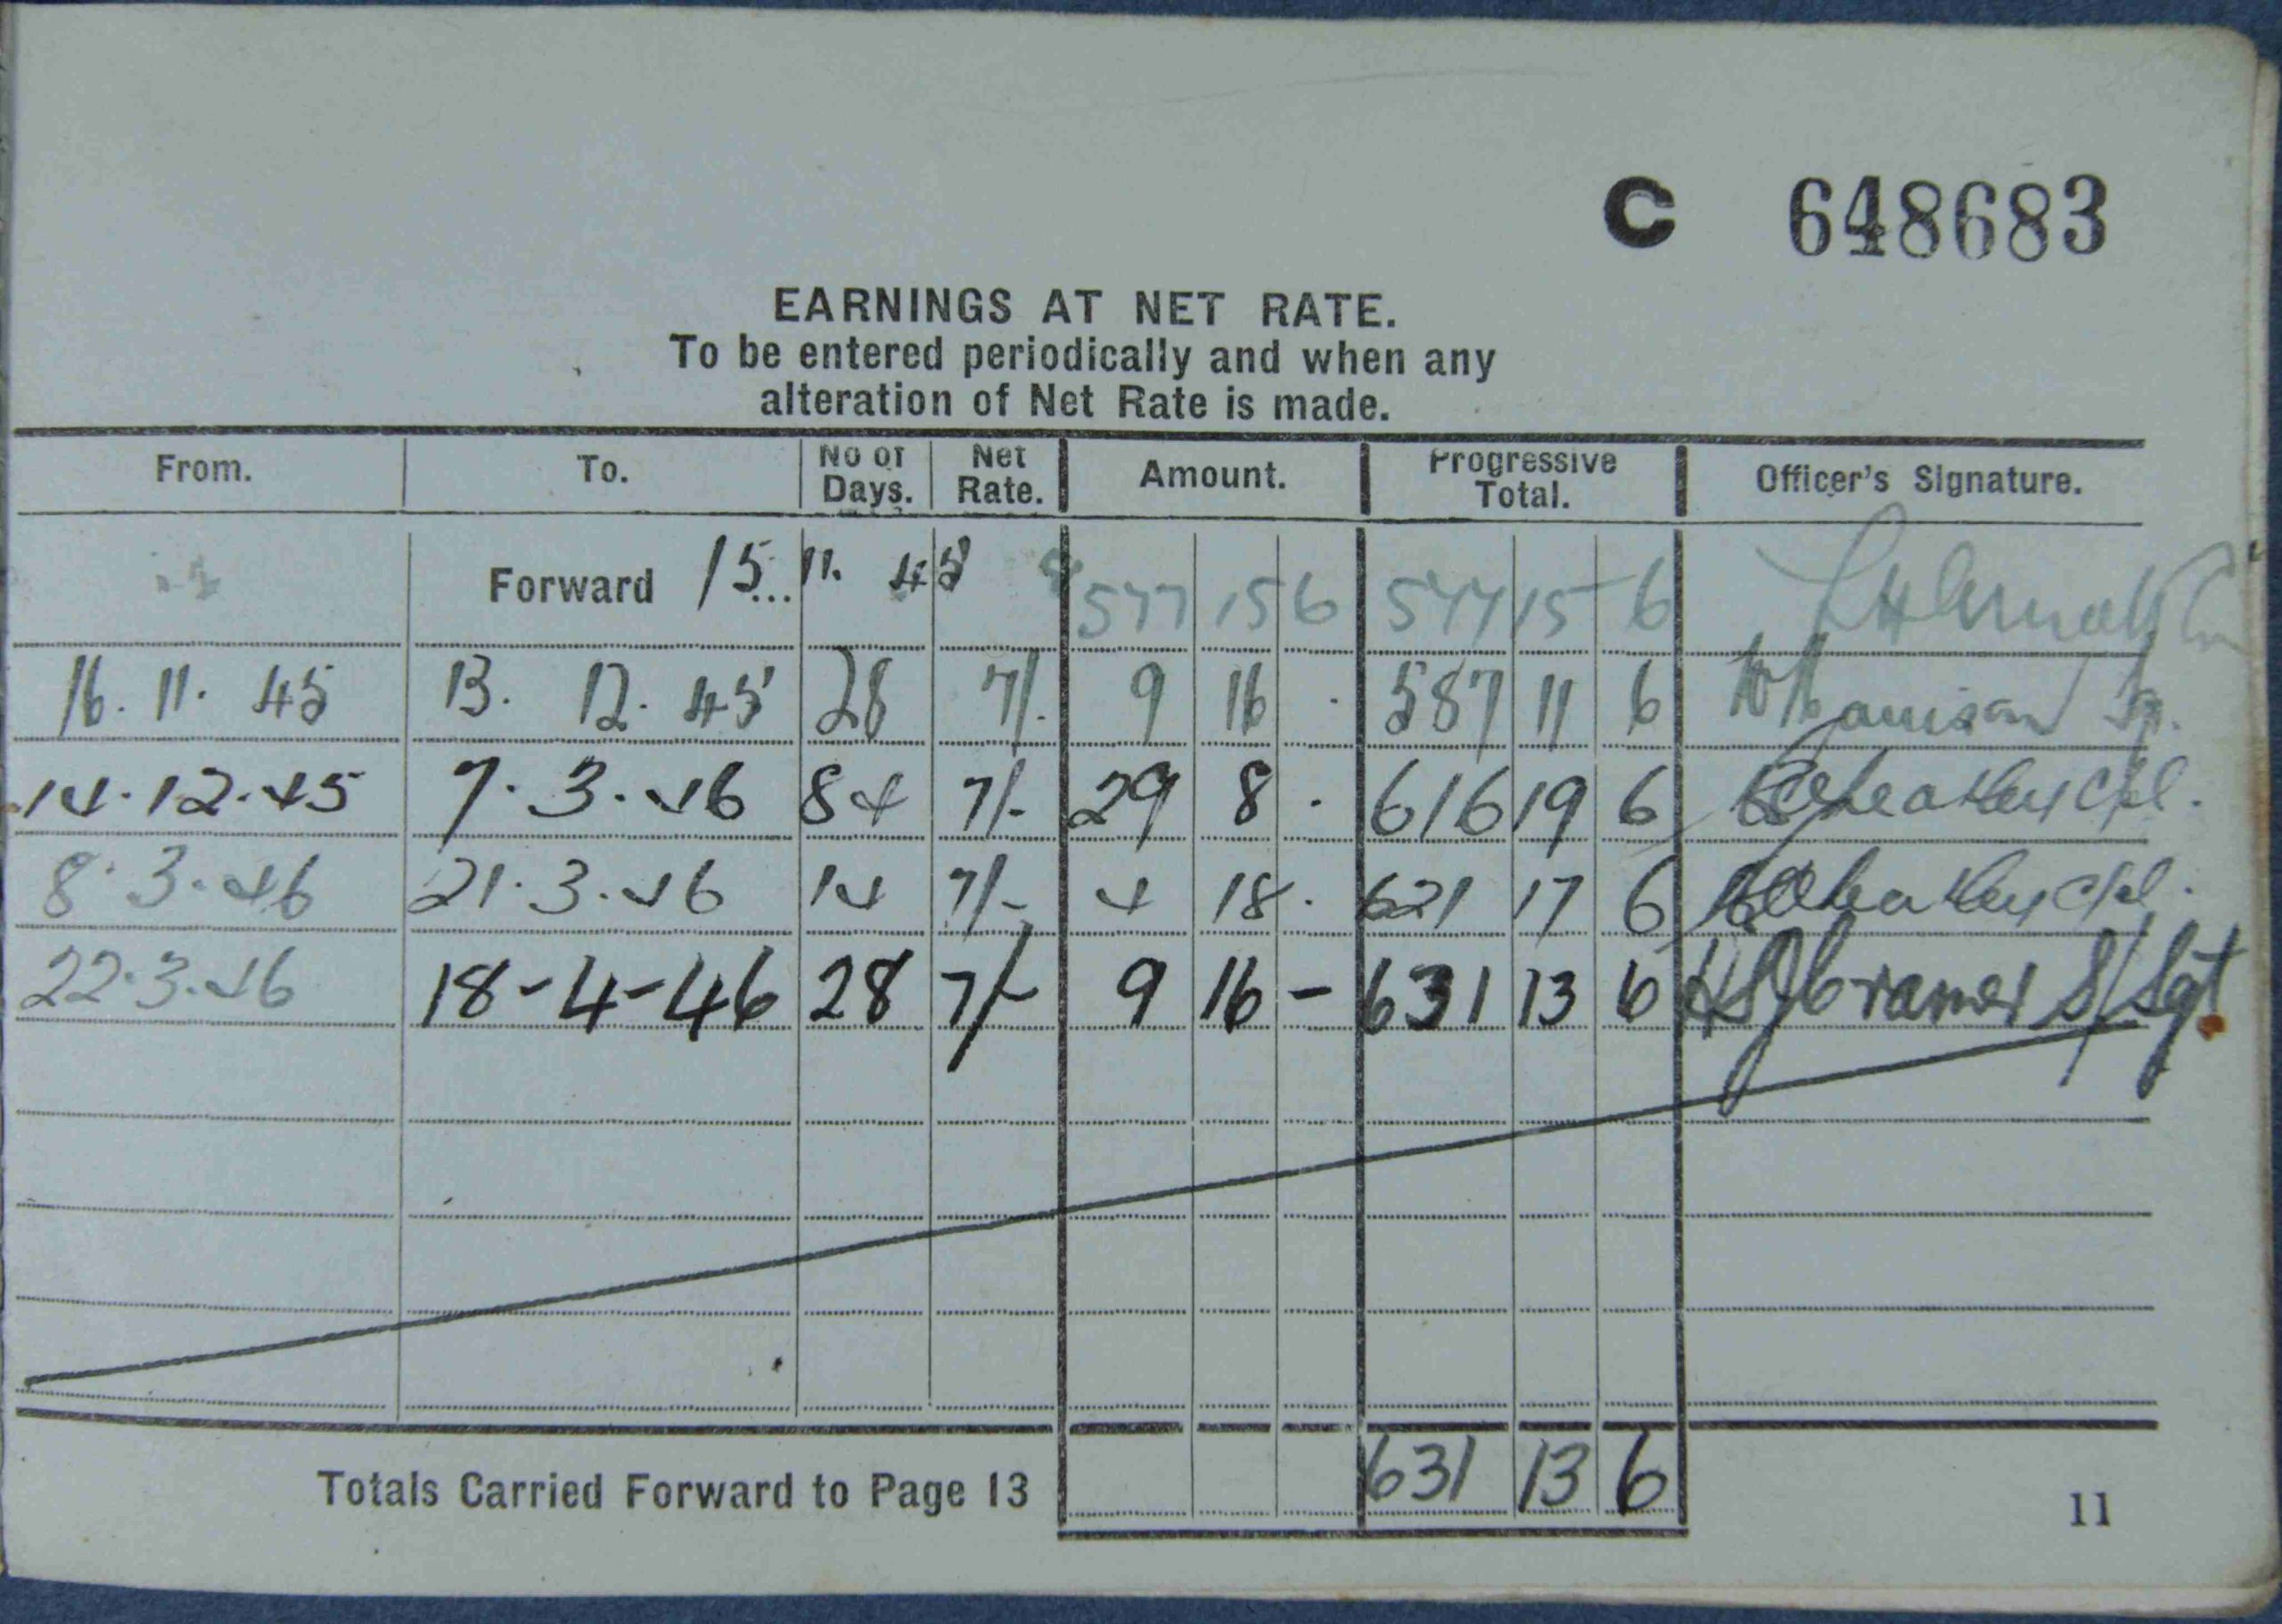 C 648683
EARNINGS AT NET RATE.
To be entered periodically and when any
alteration of Net Rate is made.
From. To. No of Days. Net Rate. Amount. Progressive Total. Officer's Signature.
Forward 15. 11. 45 577 15 6 577 15 6
16. 11. 45 13. 12. 45 28 7/. 9 16 . 587 11 6
14.12.45 7.3.46 84 7/- 29 8 . 616 19 6 Cpl.
8.3.46 21.3.46 14 7/- 4 18 . 621 17 6 Cpl.
22.3.46 18-4-46 28 7/- 9 16 - 631 13 6 S/Sgt
Totals Carried Forward to Page 13 631 13 6
11